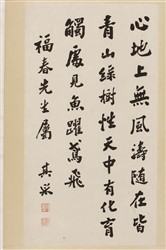 心地上無風濤隨在皆
青山綠樹性天中有化育
觸處見魚躍鳶飛
福春先生屬　其采